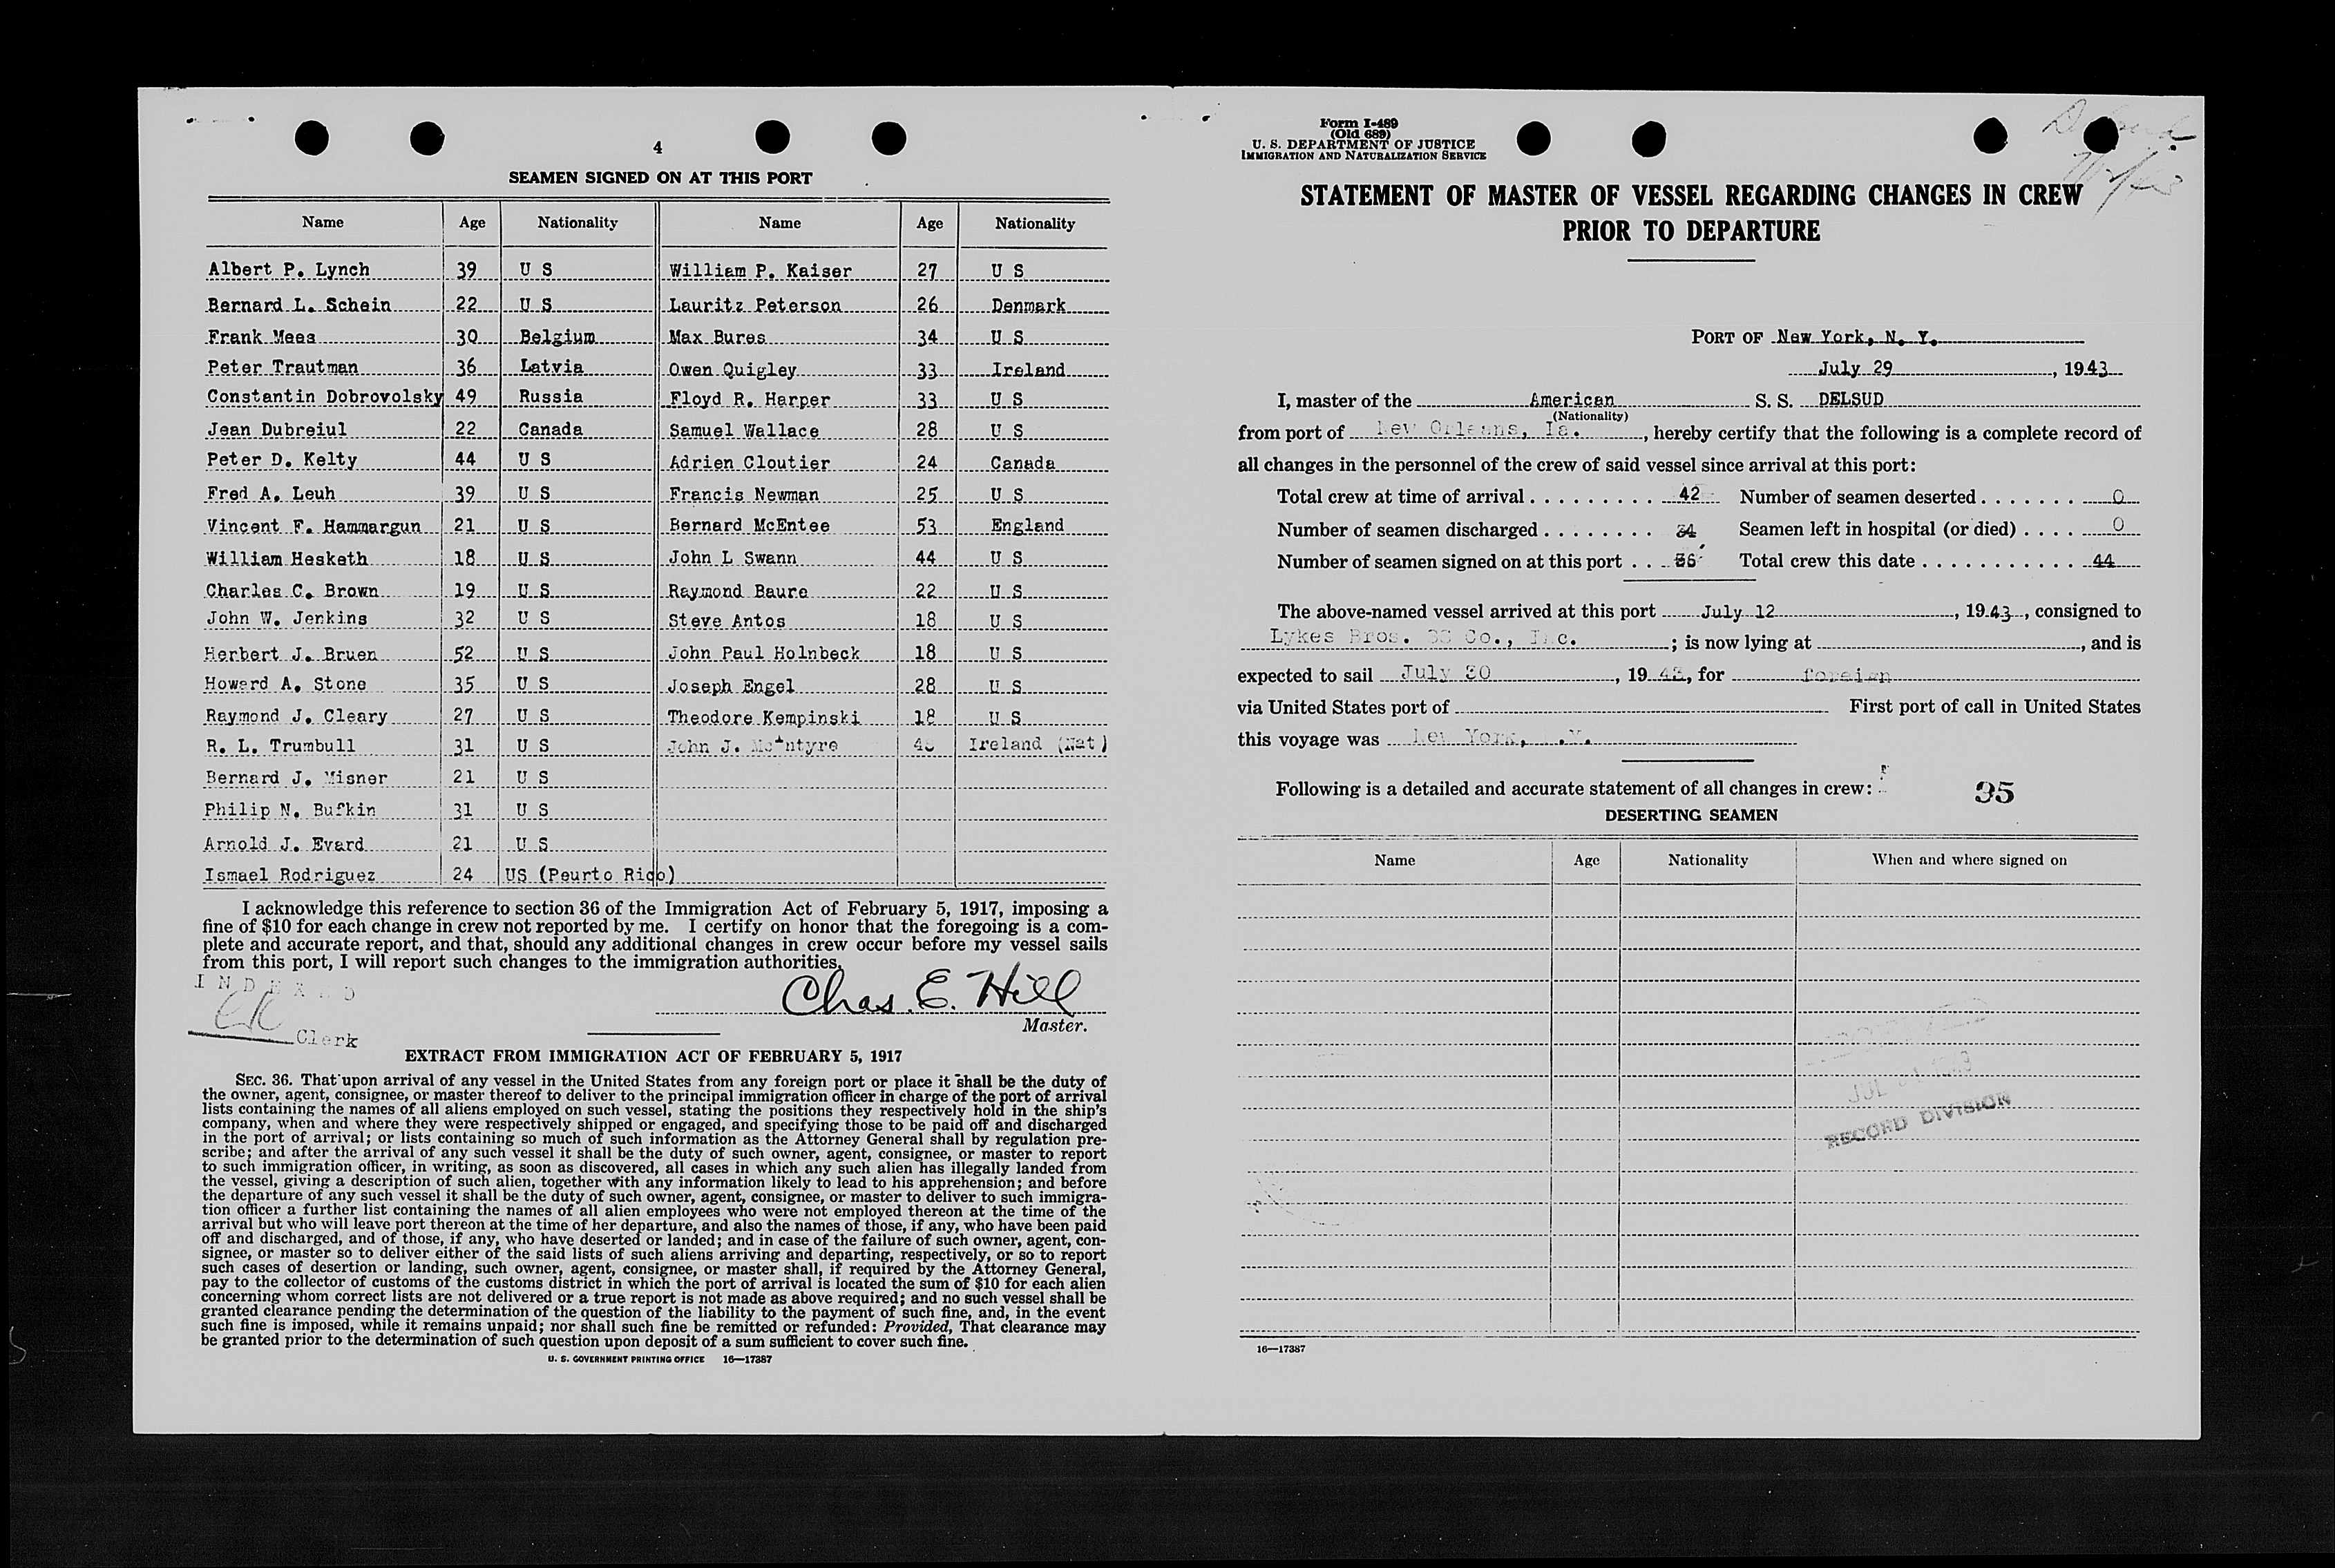 4
SEAMEN SIGNED ON AT THIS PORT
Name Age Nationality Name Age Nationality
Albert P. Lynch 39 U S William P. Kaiser 27 U S
Bernard L. Schein 22 U S Lauritz Peterson 26 Denmark
Frank Mees 30 Belgium Max Bures 34 U S
Peter Trautman 36 Latvia Owen Quigley 33 Ireland
Constantin Dobrovolsky 49 Russia Floyd R. Harper 33 U S
Jean Dubreiul 22 Canada Samuel Wallace 28 U S
Peter D. Kelty 44 U S Adrien Cloutier 24 Canada
Fred A. Leuh 39 U S Francis Newman 25 U S
Vincent F. Hammargun 21 U S Bernard McEntee 53 England
William Hesketh 18 U S John L Swann 44 U S
Charles C. Brown 19 U S Raymond Baure 22 U S
John W. Jenkins 32 U S Steve Antos 18 U S
Herbert J. Bruen 52 U S John Paul Holnbeck 18 U S
Howard A. Stone 35 U S Joseph Engel 28 U S
Raymond J. Cleary 27 U S Theodore Kempinski 18 U S
R. L. Trumbull 31 U S John J. McIntyre Ireland (Nat)
Bernard J. Misner 21 U S
Philip N. Bufkin 31 U S
Arnold J. Evard 21 U S
Ismael Rodriguez 24 US (Peurto Rico)
I acknowledge this reference to section 36 of the Immigration Act of February 5, 1917, imposing a
fine of $10 for each change in crew not reported by me. I certify on honor that the foregoing is a com-
plete and accurate report, and that, should any additional changes in crew occur before my vessel sails
from this port, I will report such changes to the immigration authorities.
INDEXED
Chas. E. Hill
Master.
Clerk
EXTRACT FROM IMMIGRATION ACT OF FEBRUARY 5, 1917
SEC. 36. That upon arrival of any vessel in the United States from any foreign port or place it shall be the duty of
the owner, agent, consignee, or master thereof to deliver to the principal immigration officer in charge of the port of arrival
lists containing the names of all aliens employed on such vessel, stating the positions they respectively hold in the ship's
company, when and where they were respectively shipped or engaged, and specifying those to be paid off and discharged
in the port of arrival; or lists containing so much of such information as the Attorney General shall by regulation pre-
scribe; and after the arrival of any such vessel it shall be the duty of such owner, agent, consignee, or master to report
to such immigration officer, in writing, as soon as discovered, all cases in which any such alien has illegally landed from
the vessel, giving a description of such alien, together with any information likely to lead to his apprehension; and before
the departure of any such vessel it shall be the duty of such owner, agent, consignee, or master to deliver to such immigra-
tion officer a further list containing the names of all alien employees who were not employed thereon at the time of the
arrival but who will leave port thereon at the time of her departure, and also the names of those, if any, who have been paid
off and discharged, and of those, if any, who have deserted or landed; and in case of the failure of such owner, agent, con-
signee, or master so to deliver either of the said lists of such aliens arriving and departing, respectively, or so to report
such cases of desertion or landing, such owner, agent, consignee, or master shall, if required by the Attorney General,
pay to the collector of customs of the customs district in which the port of arrival is located the sum of $10 for each alien
concerning whom correct lists are not delivered or a true report is not made as above required; and no such vessel shall be
granted clearance pending the determination of the question of the liability to the payment of such fine, and, in the event
such fine is imposed, while it remains unpaid; nor shall such fine be remitted or refunded: Provided, That clearance may
be granted prior to the determination of such question upon deposit of a sum sufficient to cover such fine.
U. S. GOVERNMENT PRINTING OFFICE 16—17387
Form I-489
(Old 689)
U. S. DEPARTMENT OF JUSTICE
IMMIGRATION AND NATURALIZATION SERVICE
STATEMENT OF MASTER OF VESSEL REGARDING CHANGES IN CREW
PRIOR TO DEPARTURE
PORT OF New York, N. Y.
July 29, 1943
I, master of the American S. S. DELSUD
(Nationality)
from port of New Orleans, La., hereby certify that the following is a complete record of
all changes in the personnel of the crew of said vessel since arrival at this port:
Total crew at time of arrival 42 Number of seamen deserted 0
Number of seamen discharged 34 Seamen left in hospital (or died) 0
Number of seamen signed on at this port 36 Total crew this date 44
The above-named vessel arrived at this port July 12, 1943, consigned to
Lykes Bros. SS Co., Inc.; is now lying at , and is
expected to sail July 30, 1943, for foreign
via United States port of First port of call in United States
this voyage was New York, N.Y.
Following is a detailed and accurate statement of all changes in crew:
35
DESERTING SEAMEN
Name Age Nationality When and where signed on
JUL 1943
RECORD DIVISION
16—17387